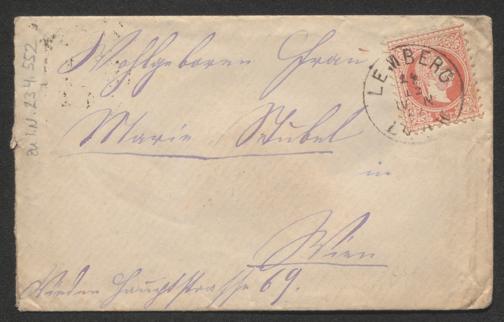 zu I.N. 234.552
Wohlgeboren Frau
Marie Stubel
in
Wien
Wieden Hauptstrasse 69.
LEMBERG